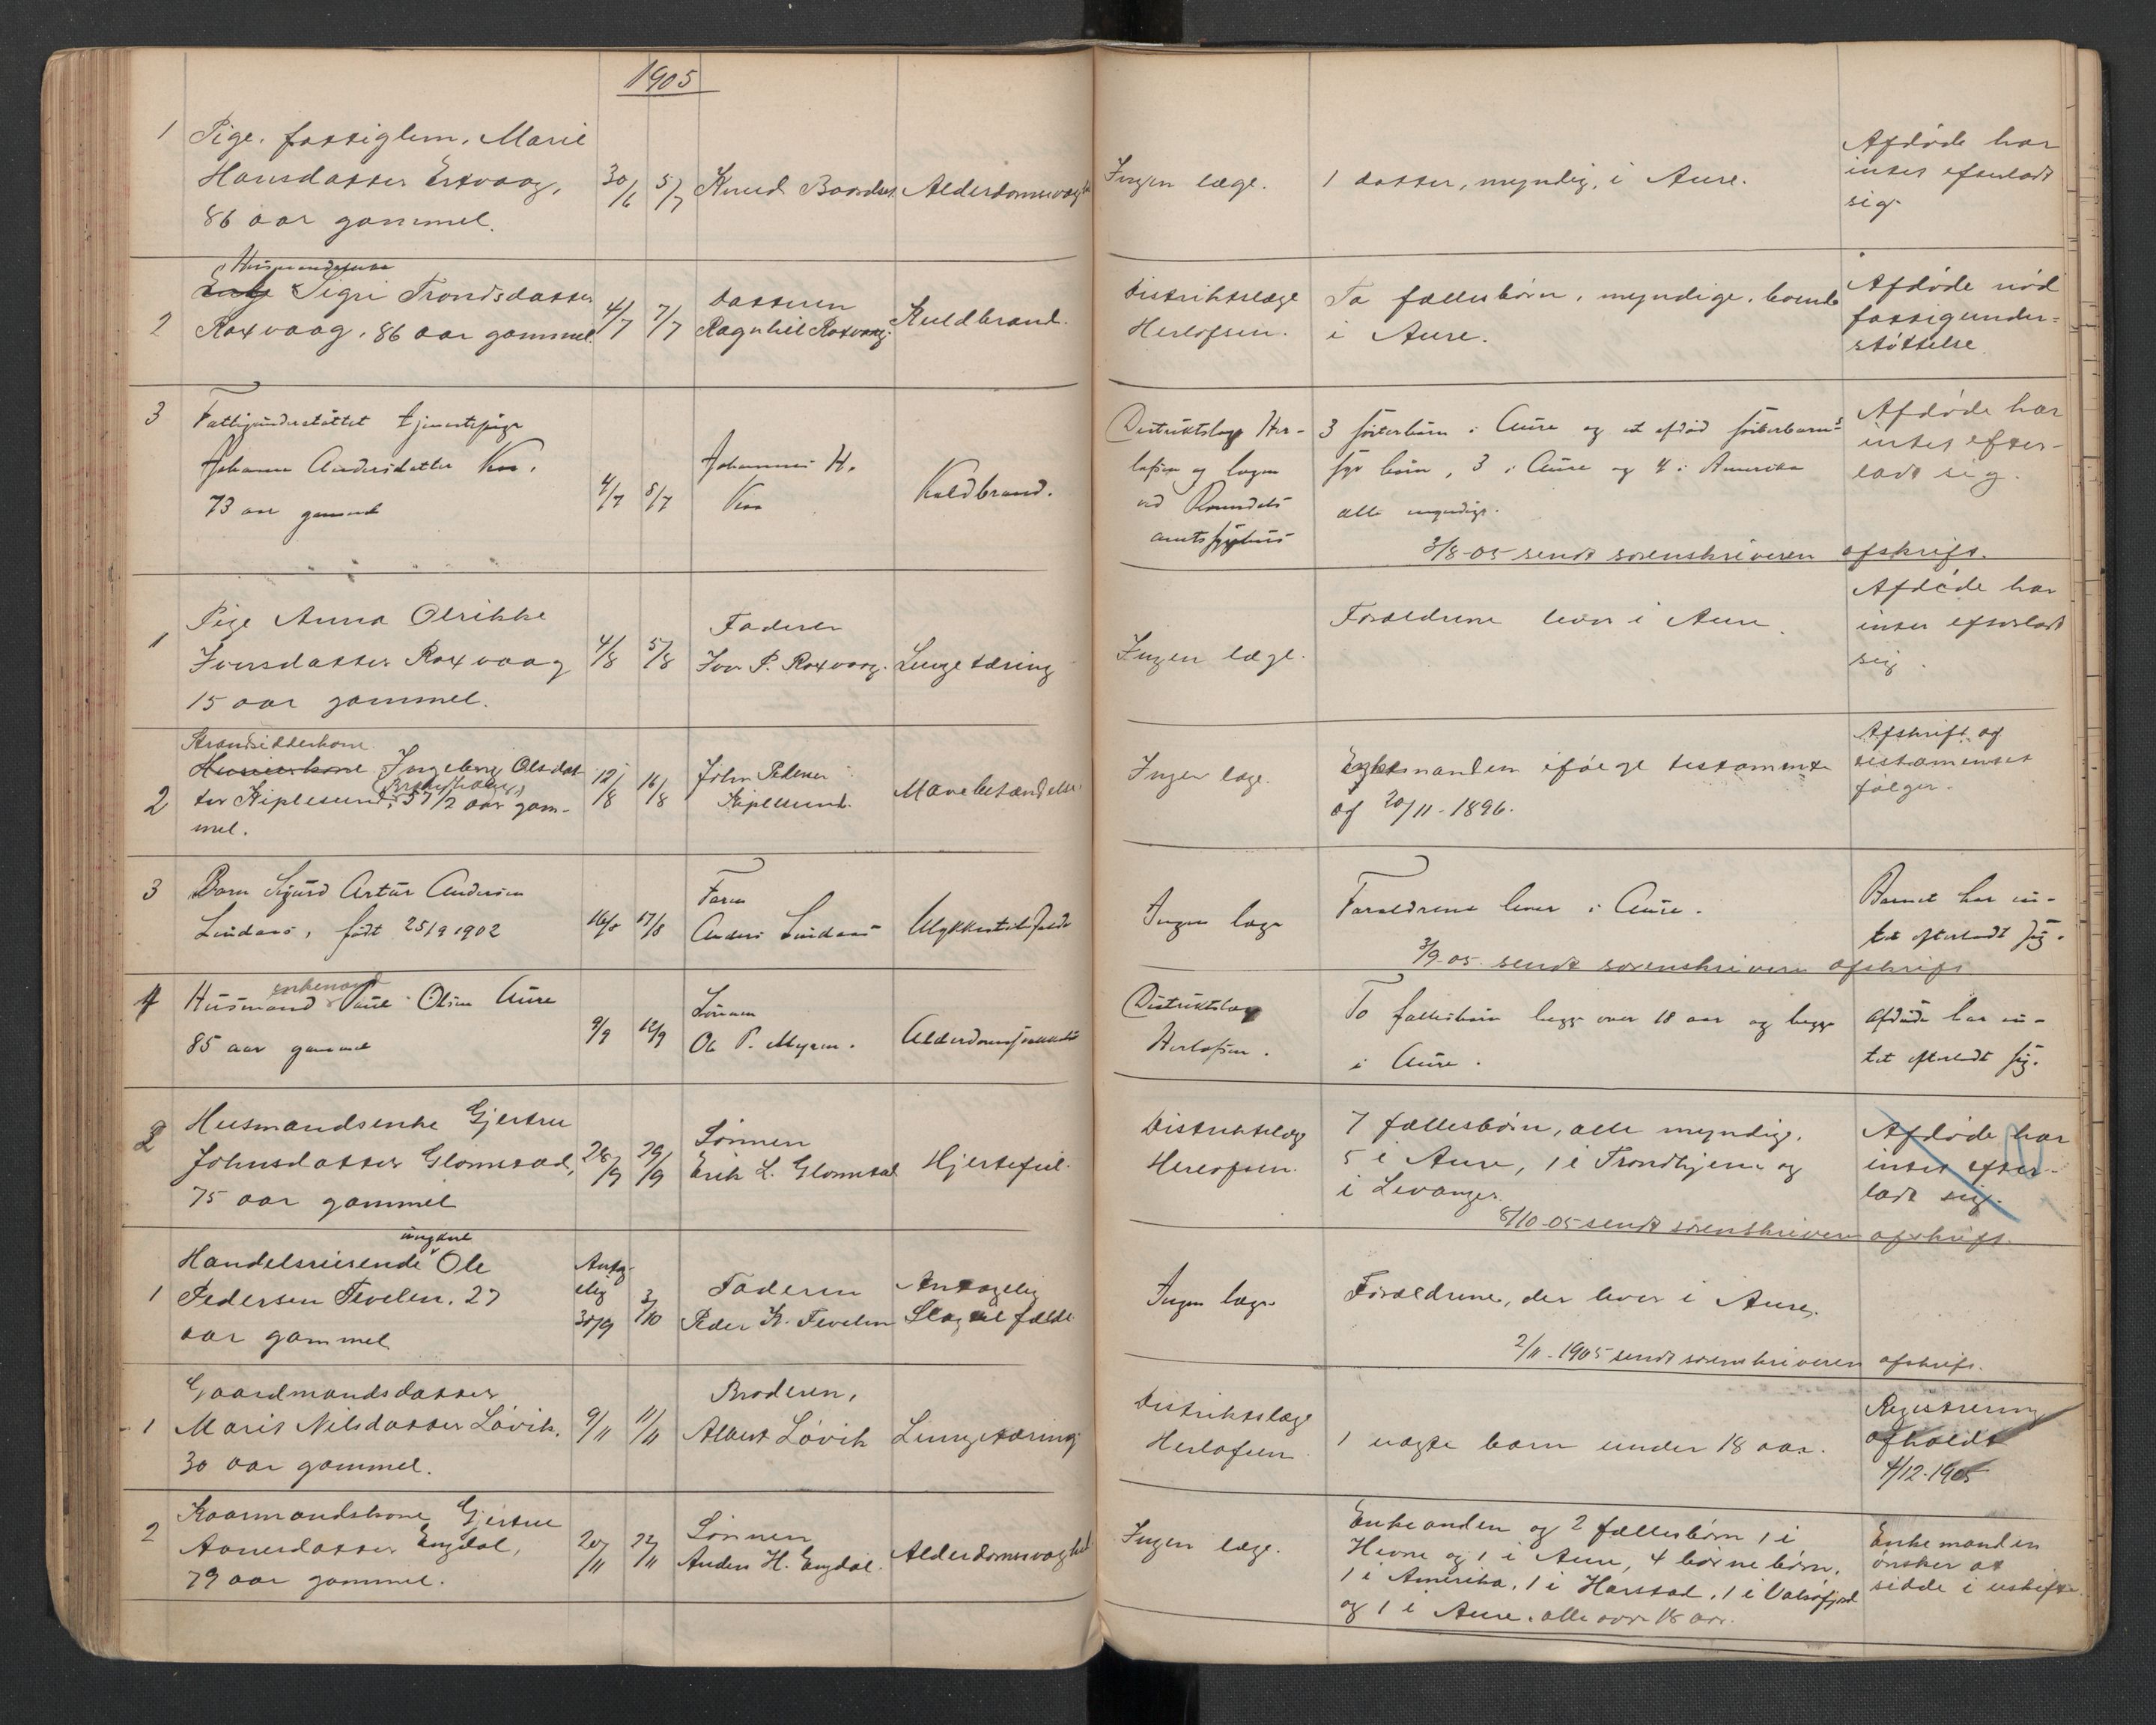 1905
1 Pige, fattiglem, Marie
Hansdatter Ertvaag,
86 aar gammel.
30/6 5/7
Knud Baardset
Alderdomssvaghed
Ingen læge.
1 datter, myndig, i Aure.
Afdøde har
intet efterladt
sig.
2 Husmandsenke
Enke Sigri Trondsdatter
Roxvaag, 86 aar gammel.
4/7 7/7
Datteren
Ragnhil Roxvaag.
Kuldbrand.
Distriktslæge
Herlofsen.
To fællesbørn, myndige, boende
i Aure.
Afdøde nød
fattigunder=
støttelse
3 Fattigunderstøttet tjenestepige
Johanna Andersdatter
73 aar gammel
4/7 8/7
Johannes H.
Koldbrand.
Distriktslæge Her-
lofsen og lægen
ved Romsdals
amts sygehus
3 søsterbørn i Aure og et afdød søsterbarns
syv børn, 3 i Aure og 4 i Amerika
alle myndige.
Afdøde har
intet efter-
ladt sig.
3/8-05 sendt sorenskriveren afskrift.
1 Pige Anna Olrikke
Iversdatter Roxvaag
15 aar gammel.
4/8 5/8
Faderen
Iver P. Roxvaag.
Lungetæring
Ingen læge.
Forældrene lever i Aure.
Afdøde har
intet efterladt
sig.
2 Strandsidderkone
Husmandskone Ingeborg Olsdat
ter Kiplesund, 57 1/2 aar gam-
mel.
12/8 16/8
John Pedersen
Kiplesund.
Mavebetændelse.
Ingen læge.
Enkemanden ifølge testamente
af 20/11-1896.
Afskrift af
testamentet
følger.
3 Barn Sigurd Artur Andersen
Lindaas, født 25/9 1902
16/8 17/8
Faren
Anders Lindaas
Ulykkestilfælde
Ingen læge
Forældrene lever i Aure.
Barnet har in-
tet efterladt sig.
3/9-05 sendt sorenskriveren afskrift
4 enkemand
Husmand Paul Olsen Aure
85 aar gammel
9/9 12/9
Sønnen
Ole P. Myren.
Distriktslæge
Herlofsen.
To fællesbørn begge over 18 aar og begge
i Aure.
Afdøde har in-
tet efterladt sig.
2 Husmandsenke Gjertru
Johnsdatter Glomstad,
75 aar gammel
28/9 29/9
Sønnen
Erik L. Glomstad
Hjertefeil.
Distriktslæge
Herlofsen.
7 fællesbørn, alle myndige,
5 i Aure, 1 i Trondhjem og
i Levanger.
Afdøde har
intet efter-
ladt sig.
8/10-05 sendt sorenskriveren afskrift.
1 ungkarl
Handelsreisende Ole
Pedersen Tevelen, 27
aar gammel
Antag-
elig
30/9
3/10
Faderen
Peder K. Tevelen
Antagelig
Slagtilfælde
Ingen læge
Forældrene, der lever i Aure.
2/11-1905 sendt sorenskriveren afskrift.
1 Gaardmandsdatter
Marit Nilsdatter Løvik,
30 aar gammel.
9/11 11/11
Broderen,
Albert Løvik
Lungetæring
Distriktslæge
Herlofsen
1 uægte barn under 18 aar.
Registrering
afholdt
4/12-1905
2 Kaarmandskone Gjertru
Aanesdatter Engdal,
79 aar gammel.
20/11 22/11
Sønnen
Anders H. Engdal.
Alderdomssvaghed
Ingen læge.
Enkemanden og 2 fællesbørn 1 i
Hevne og 1 i Aure, 4 børnebørn,
1 i Amerika, 1 i Harstad, 1 i Valsøfjord
og 1 i Aure, alle over 18 aar.
Enkemanden
ønsker at
sidde i uskifte.